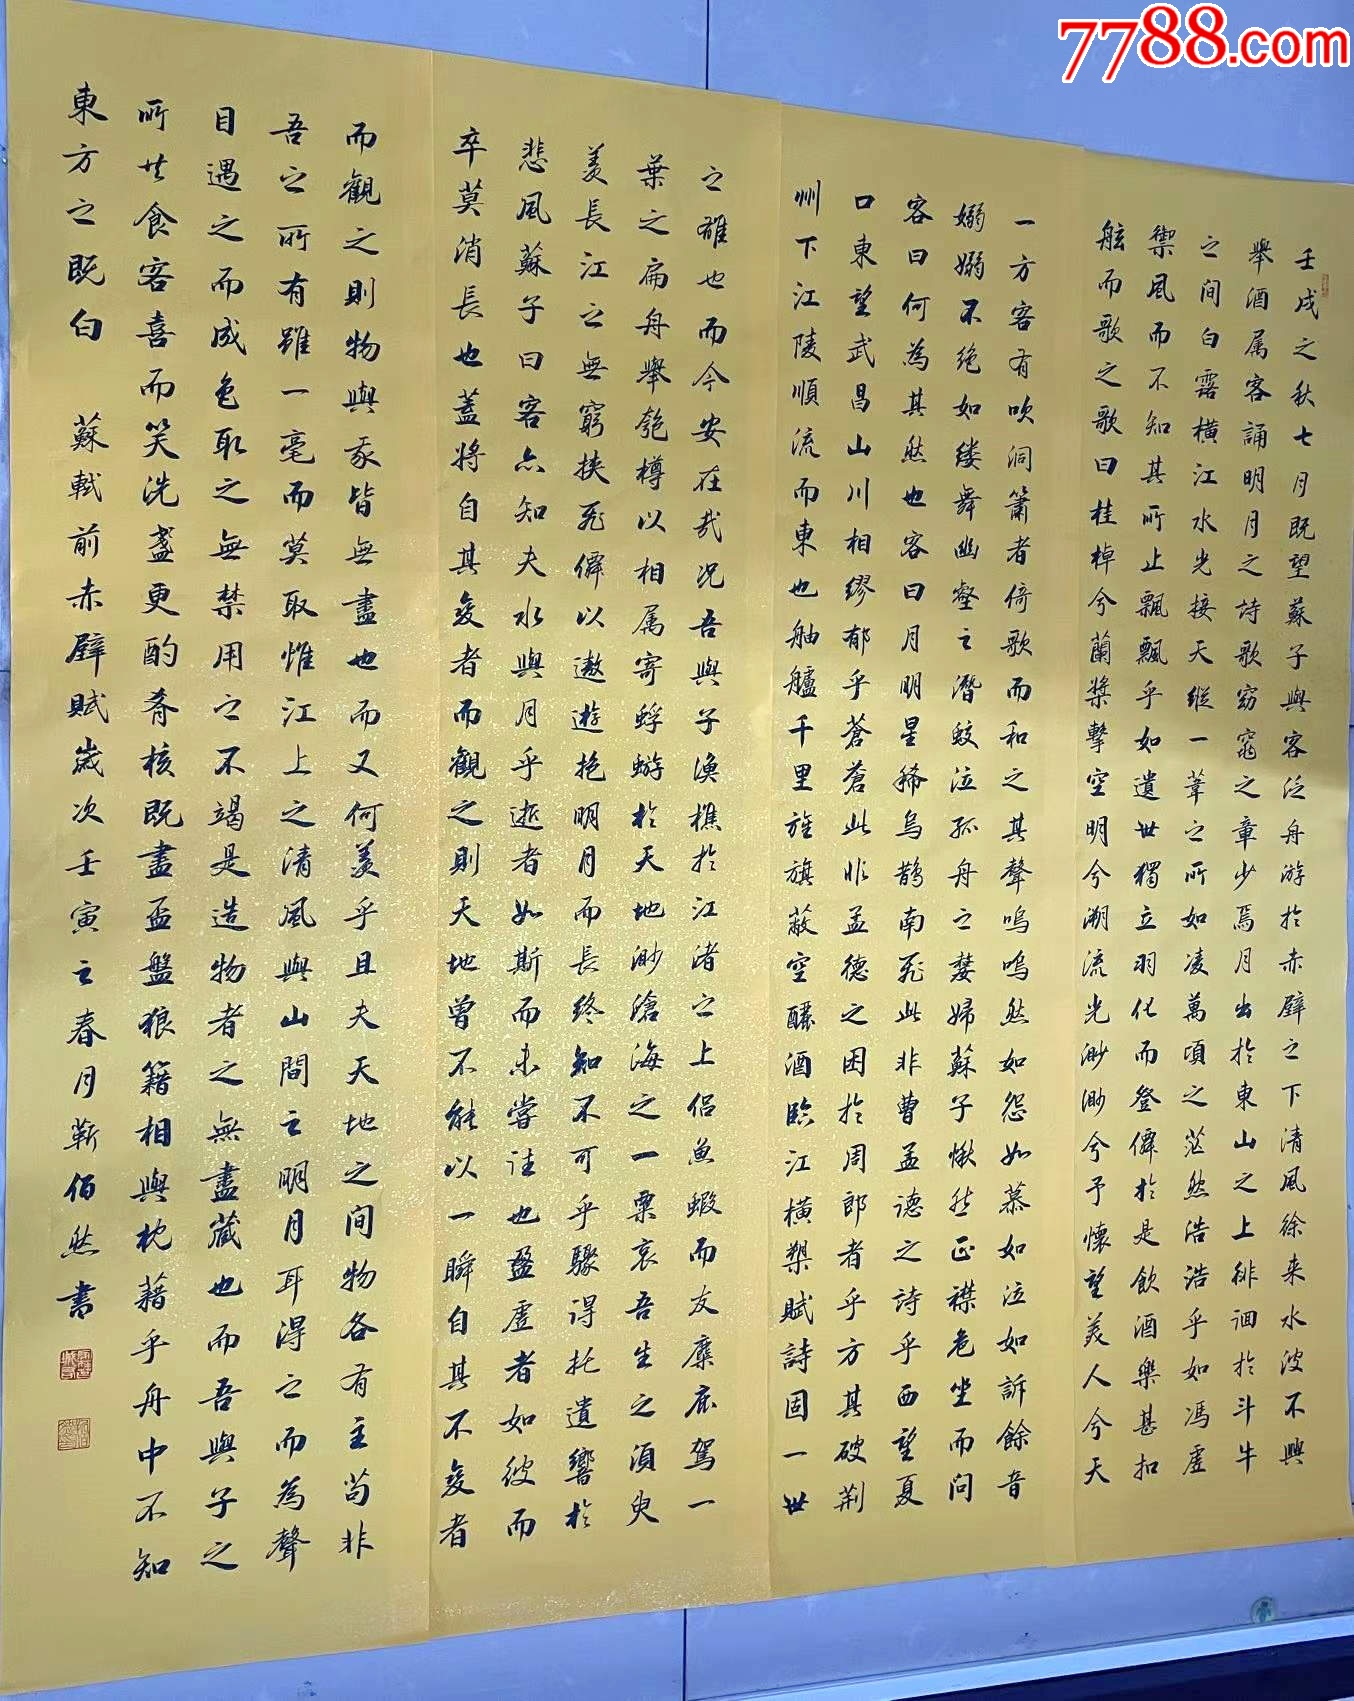 7788.com
壬戌之秋七月既望蘇子與客泛舟游於赤壁之下清風徐来水波不興
舉酒属客誦明月之詩歌窈窕之章少焉月出於東山之上徘徊於斗牛
之间白露横江水光接天縱一葦之所如凌萬頃之茫然浩浩乎如馮虚
禦風而不知其所止飄飄乎如遺世獨立羽化而登僊於是飲酒樂甚扣
舷而歌之歌曰桂棹兮蘭槳擊空明兮溯流光渺渺兮予懷望美人兮天
一方客有吹洞簫者倚歌而和之其聲嗚嗚然如怨如慕如泣如訴餘音
嫋嫋不绝如缕舞幽壑之潛蛟泣孤舟之嫠婦蘇子愀然正襟危坐而问
客曰何為其然也客曰月明星稀烏鹊南飛此非曹孟德之詩乎西望夏
口東望武昌山川相缪郁乎蒼蒼此非孟德之困於周郎者乎方其破荆
州下江陵順流而東也舳艫千里旌旗蔽空釃酒臨江横槊賦詩固一世
之雄也而今安在哉况吾與子渔樵於江渚之上侣魚蝦而友麋鹿駕一
葉之扁舟舉匏樽以相属寄蜉蝣於天地渺滄海之一粟哀吾生之須臾
羡長江之無窮挟飛僊以遨遊抱明月而長终知不可乎驟得托遺響於
悲風蘇子曰客亦知夫水與月乎逝者如斯而未嘗往也盈虚者如彼而
卒莫消長也蓋将自其变者而觀之則天地曾不能以一瞬自其不变者
而觀之則物與我皆無盡也而又何羡乎且夫天地之间物各有主苟非
吾之所有雖一毫而莫取惟江上之清風與山間之明月耳得之而為聲
目遇之而成色取之無禁用之不竭是造物者之無盡藏也而吾與子之
所共食客喜而笑洗盞更酌肴核既盡盃盤狼籍相與枕藉乎舟中不知
東方之既白 蘇軾前赤壁賦歲次壬寅之春月靳佰然書